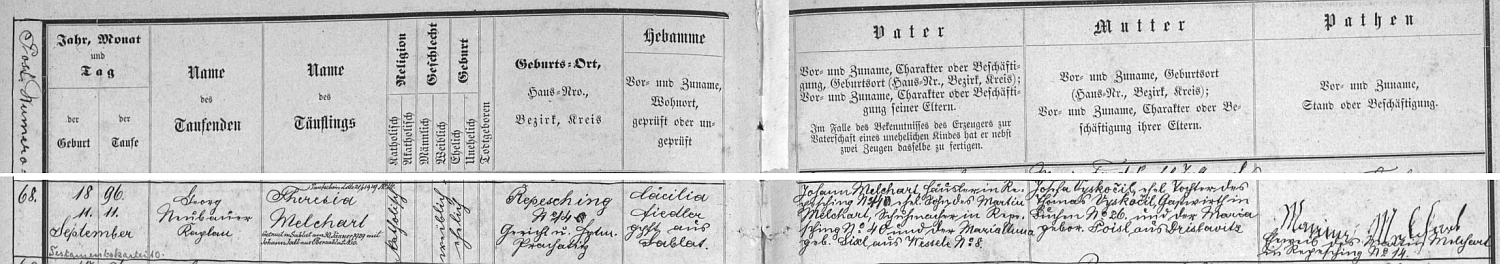 Post Numero
Jahr, Monat
und
Tag
der
Geburt
der
Taufe
Name
des
Taufenden
Name
des
Täuflings
Religion
Katholisch
Akatholisch
Geschlecht
Männlich
Weiblich
Geburt
Ehelich
Unehelich
Todtgeboren
Geburts-Ort,
Haus-Nro.,
Bezirk, Kreis
Hebamme
Vor- und Zuname,
Wohnort,
geprüft oder un-
geprüft
Vater
Vor- und Zuname, Charakter oder Beschäfti-
gung, Geburtsort (Haus-Nr., Bezirk, Kreis);
Vor- und Zuname, Charakter oder Beschäfti-
gung seiner Eltern.
Im Falle des Bekenntnisses des Erzeugers zur
Vaterschaft eines unehelichen Kindes hat er nebst
zwei Zeugen dasselbe zu fertigen.
Mutter
Vor- und Zuname, Geburtsort
(Haus-Nr., Bezirk, Kreis);
Vor- und Zuname, Charakter oder Be-
schäftigung ihrer Eltern.
Pathen
Vor- und Zuname,
Stand oder Beschäftigung.
68.
18 96.
11. 11.
September
Georg
Neubauer
Kaplan
Theresia
Melchart
katholisch
weiblich
ehelich
Repesching
No 40
Gericht u.
Prachatitz
Cäcilia
Fiedler
gepft aus
Sablat.
Johann Melchart, Häusler in Re-
pesching No 40, ehel. Sohn des Martin
Melchart, Schuhmacher in Repe-
sching No 40 und der Maria Anna
geb. aus No 8.
Josefa Vyskočil, ehel. Tochter des
Thomas Vyskočil, Gastwirth in
No 26. und der Maria
gebor. Toisl aus Drislavitz
Melchart
des Martin Melchart
in Repesching No 14.